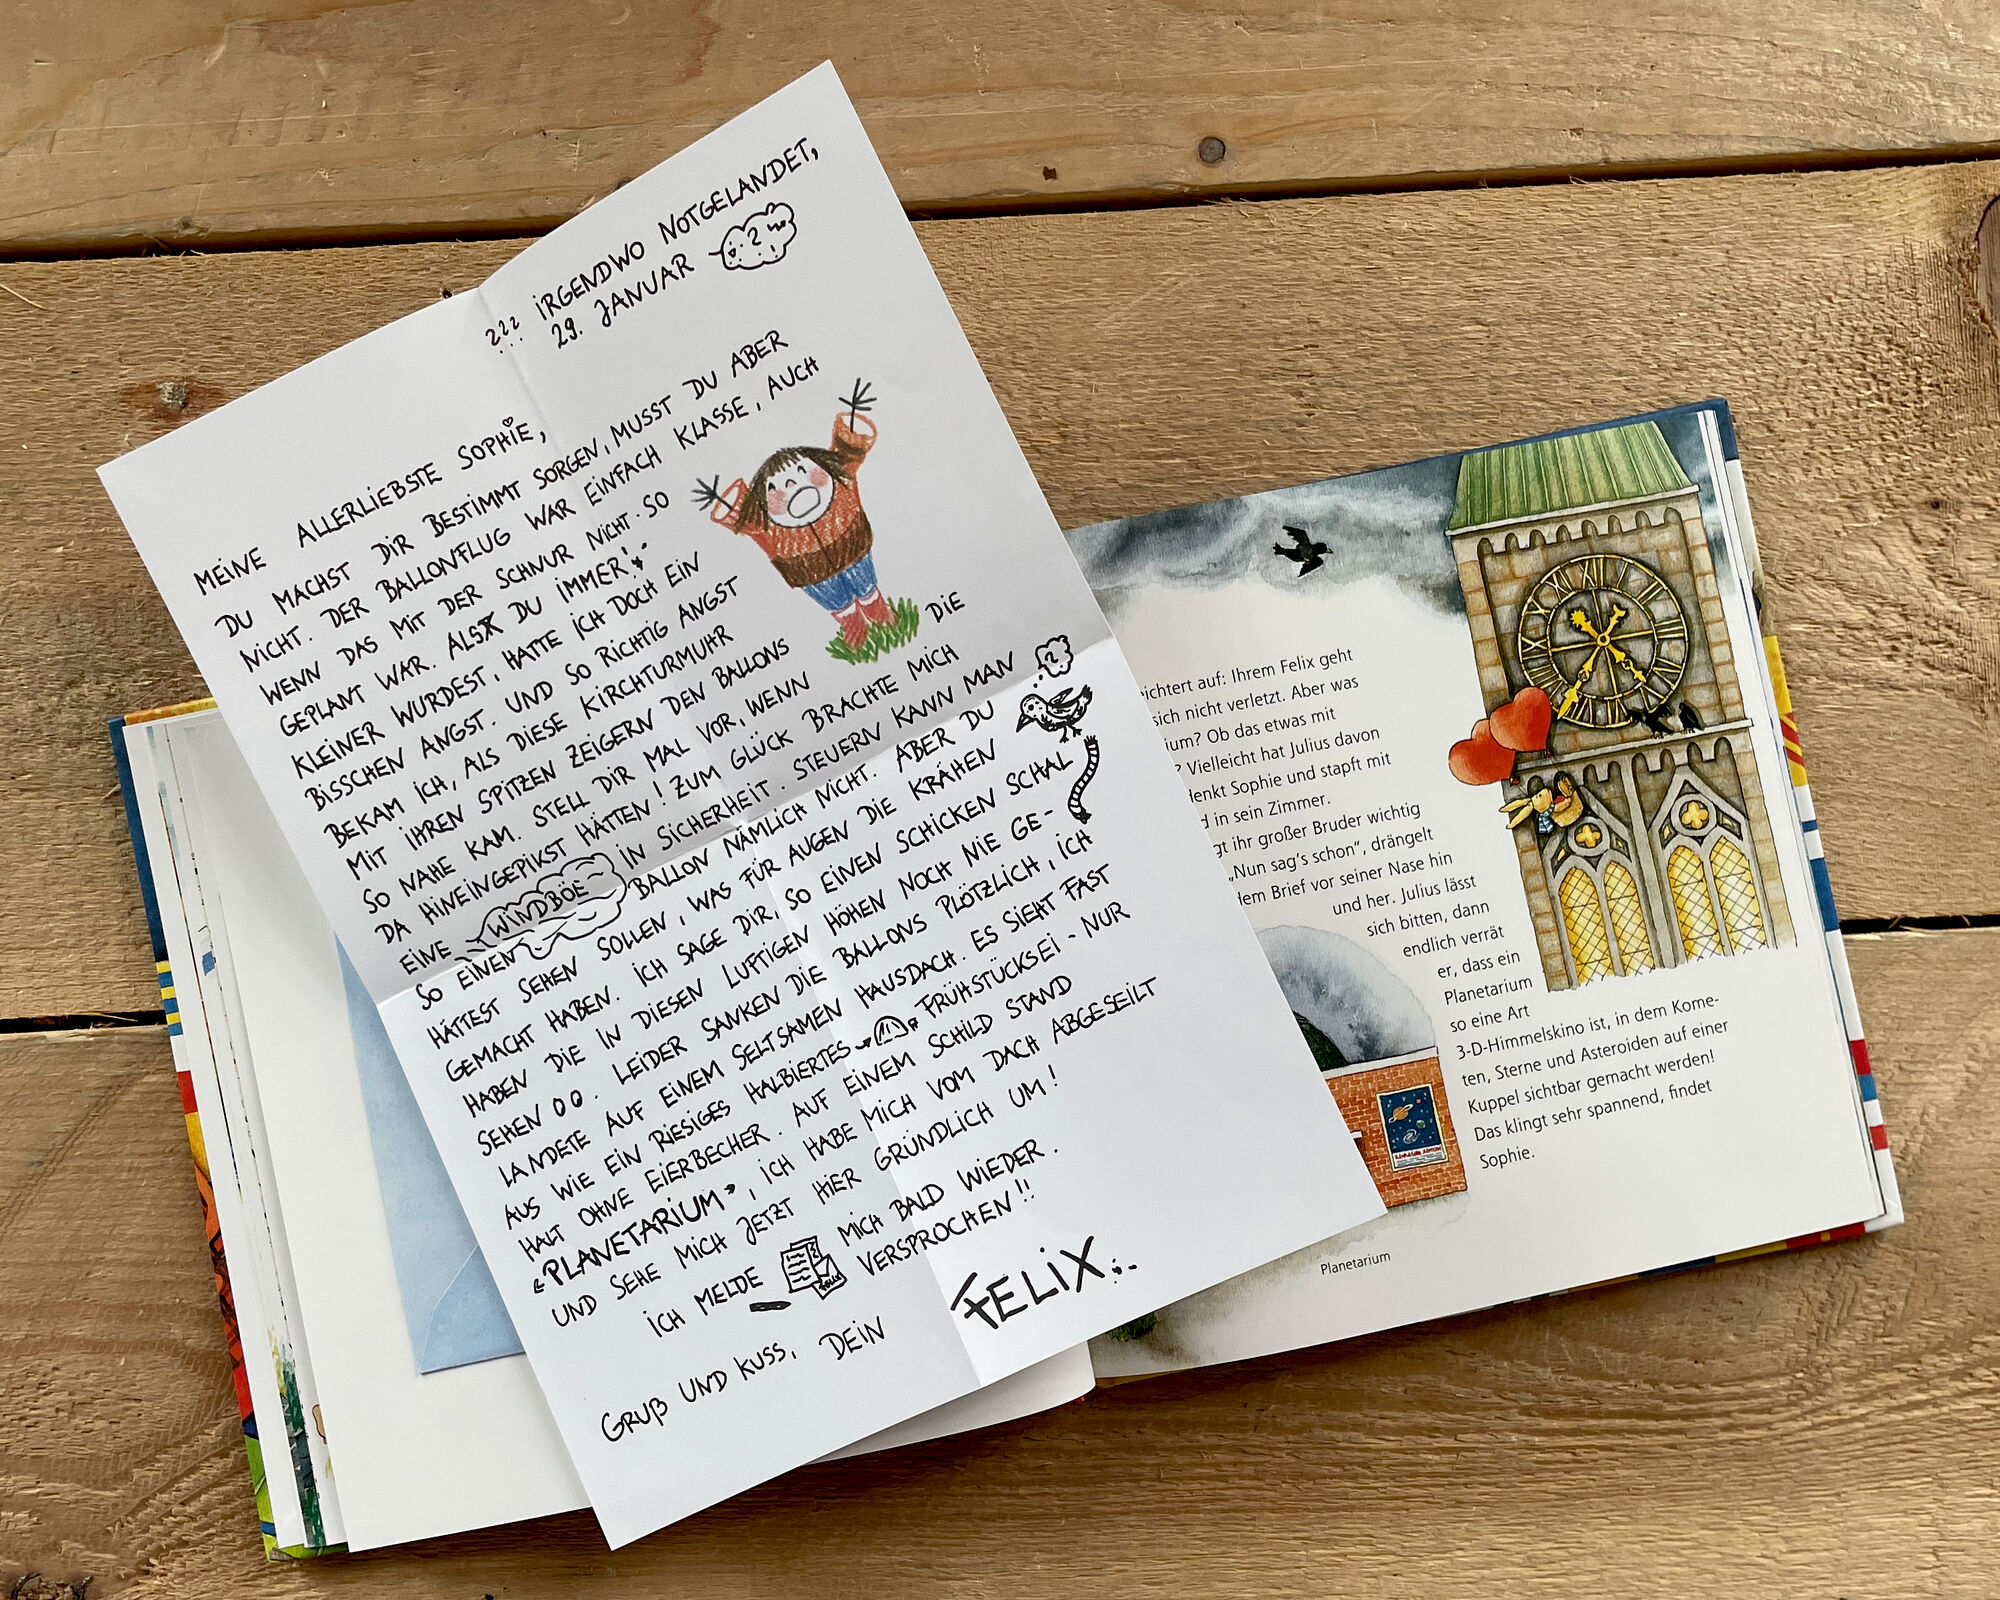 ??? IRGENDWO NOTGELANDET,
29. JANUAR
MEINE ALLERLIEBSTE SOPHIE,
DU MACHST DIR BESTIMMT SORGEN, MUSST DU ABER
NICHT. DER BALLONFLUG WAR EINFACH KLASSE, AUCH
WENN DAS MIT DER SCHNUR NICHT SO
GEPLANT WAR. ALS DU IMMER
KLEINER WURDEST, HATTE ICH DOCH EIN
BISSCHEN ANGST. UND SO RICHTIG ANGST
BEKAM ICH, ALS DIESE KIRCHTURMUHR
MIT IHREN SPITZEN ZEIGERN DEN BALLONS
SO NAHE KAM. STELL DIR MAL VOR, WENN DIE
DA HINEINGEPIKST HÄTTEN! ZUM GLÜCK BRACHTE MICH
EINE WINDBÖE IN SICHERHEIT. STEUERN KANN MAN
SO EINEN BALLON NÄMLICH NICHT. ABER DU
HÄTTEST SEHEN SOLLEN, WAS FÜR AUGEN DIE KRÄHEN
GEMACHT HABEN. ICH SAGE DIR, SO EINEN SCHICKEN SCHAL
HABEN DIE IN DIESEN LUFTIGEN HÖHEN NOCH NIE GE-
SEHEN. LEIDER SANKEN DIE BALLONS PLÖTZLICH, ICH
LANDETE AUF EINEM SELTSAMEN HAUSDACH. ES SIEHT FAST
AUS WIE EIN RIESIGES HALBIERTES FRÜHSTÜCKSEI - NUR
HALT OHNE EIERBECHER. AUF EINEM SCHILD STAND
„PLANETARIUM", ICH HABE MICH VOM DACH ABGESEILT
UND SEHE MICH JETZT HIER GRÜNDLICH UM!
ICH MELDE MICH BALD WIEDER.
VERSPROCHEN!!
GRUß UND KUSS, DEIN
FELIX
ichtert auf: Ihrem Felix geht
sich nicht verletzt. Aber was
ium? Ob das etwas mit
? Vielleicht hat Julius davon
denkt Sophie und stapft mit
d in sein Zimmer.
gt ihr großer Bruder wichtig
„Nun sag's schon", drängelt
dem Brief vor seiner Nase hin
und her. Julius lässt
sich bitten, dann
endlich verrät
er, dass ein
Planetarium
so eine Art
3-D-Himmelskino ist, in dem Kome-
ten, Sterne und Asteroiden auf einer
Kuppel sichtbar gemacht werden!
Das klingt sehr spannend, findet
Sophie.
Planetarium